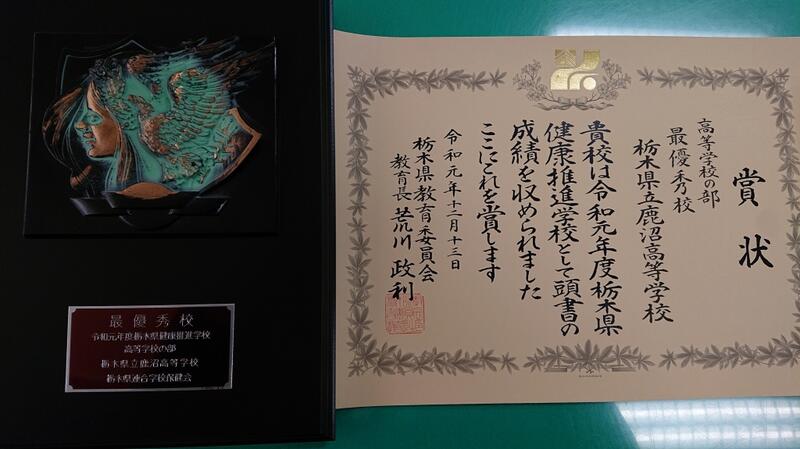 最優秀校
令和元年度栃木県健康推進学校
高等学校の部
栃木県立鹿沼高等学校
栃木県連合学校保健会
賞状
高等学校の部
最優秀校
栃木県立鹿沼高等学校
貴校は令和元年度栃木県
健康推進学校として頭書の
成績を収められました
ここにこれを賞します
令和元年十二月十三日
栃木県教育委員会
教育長 荒川政利